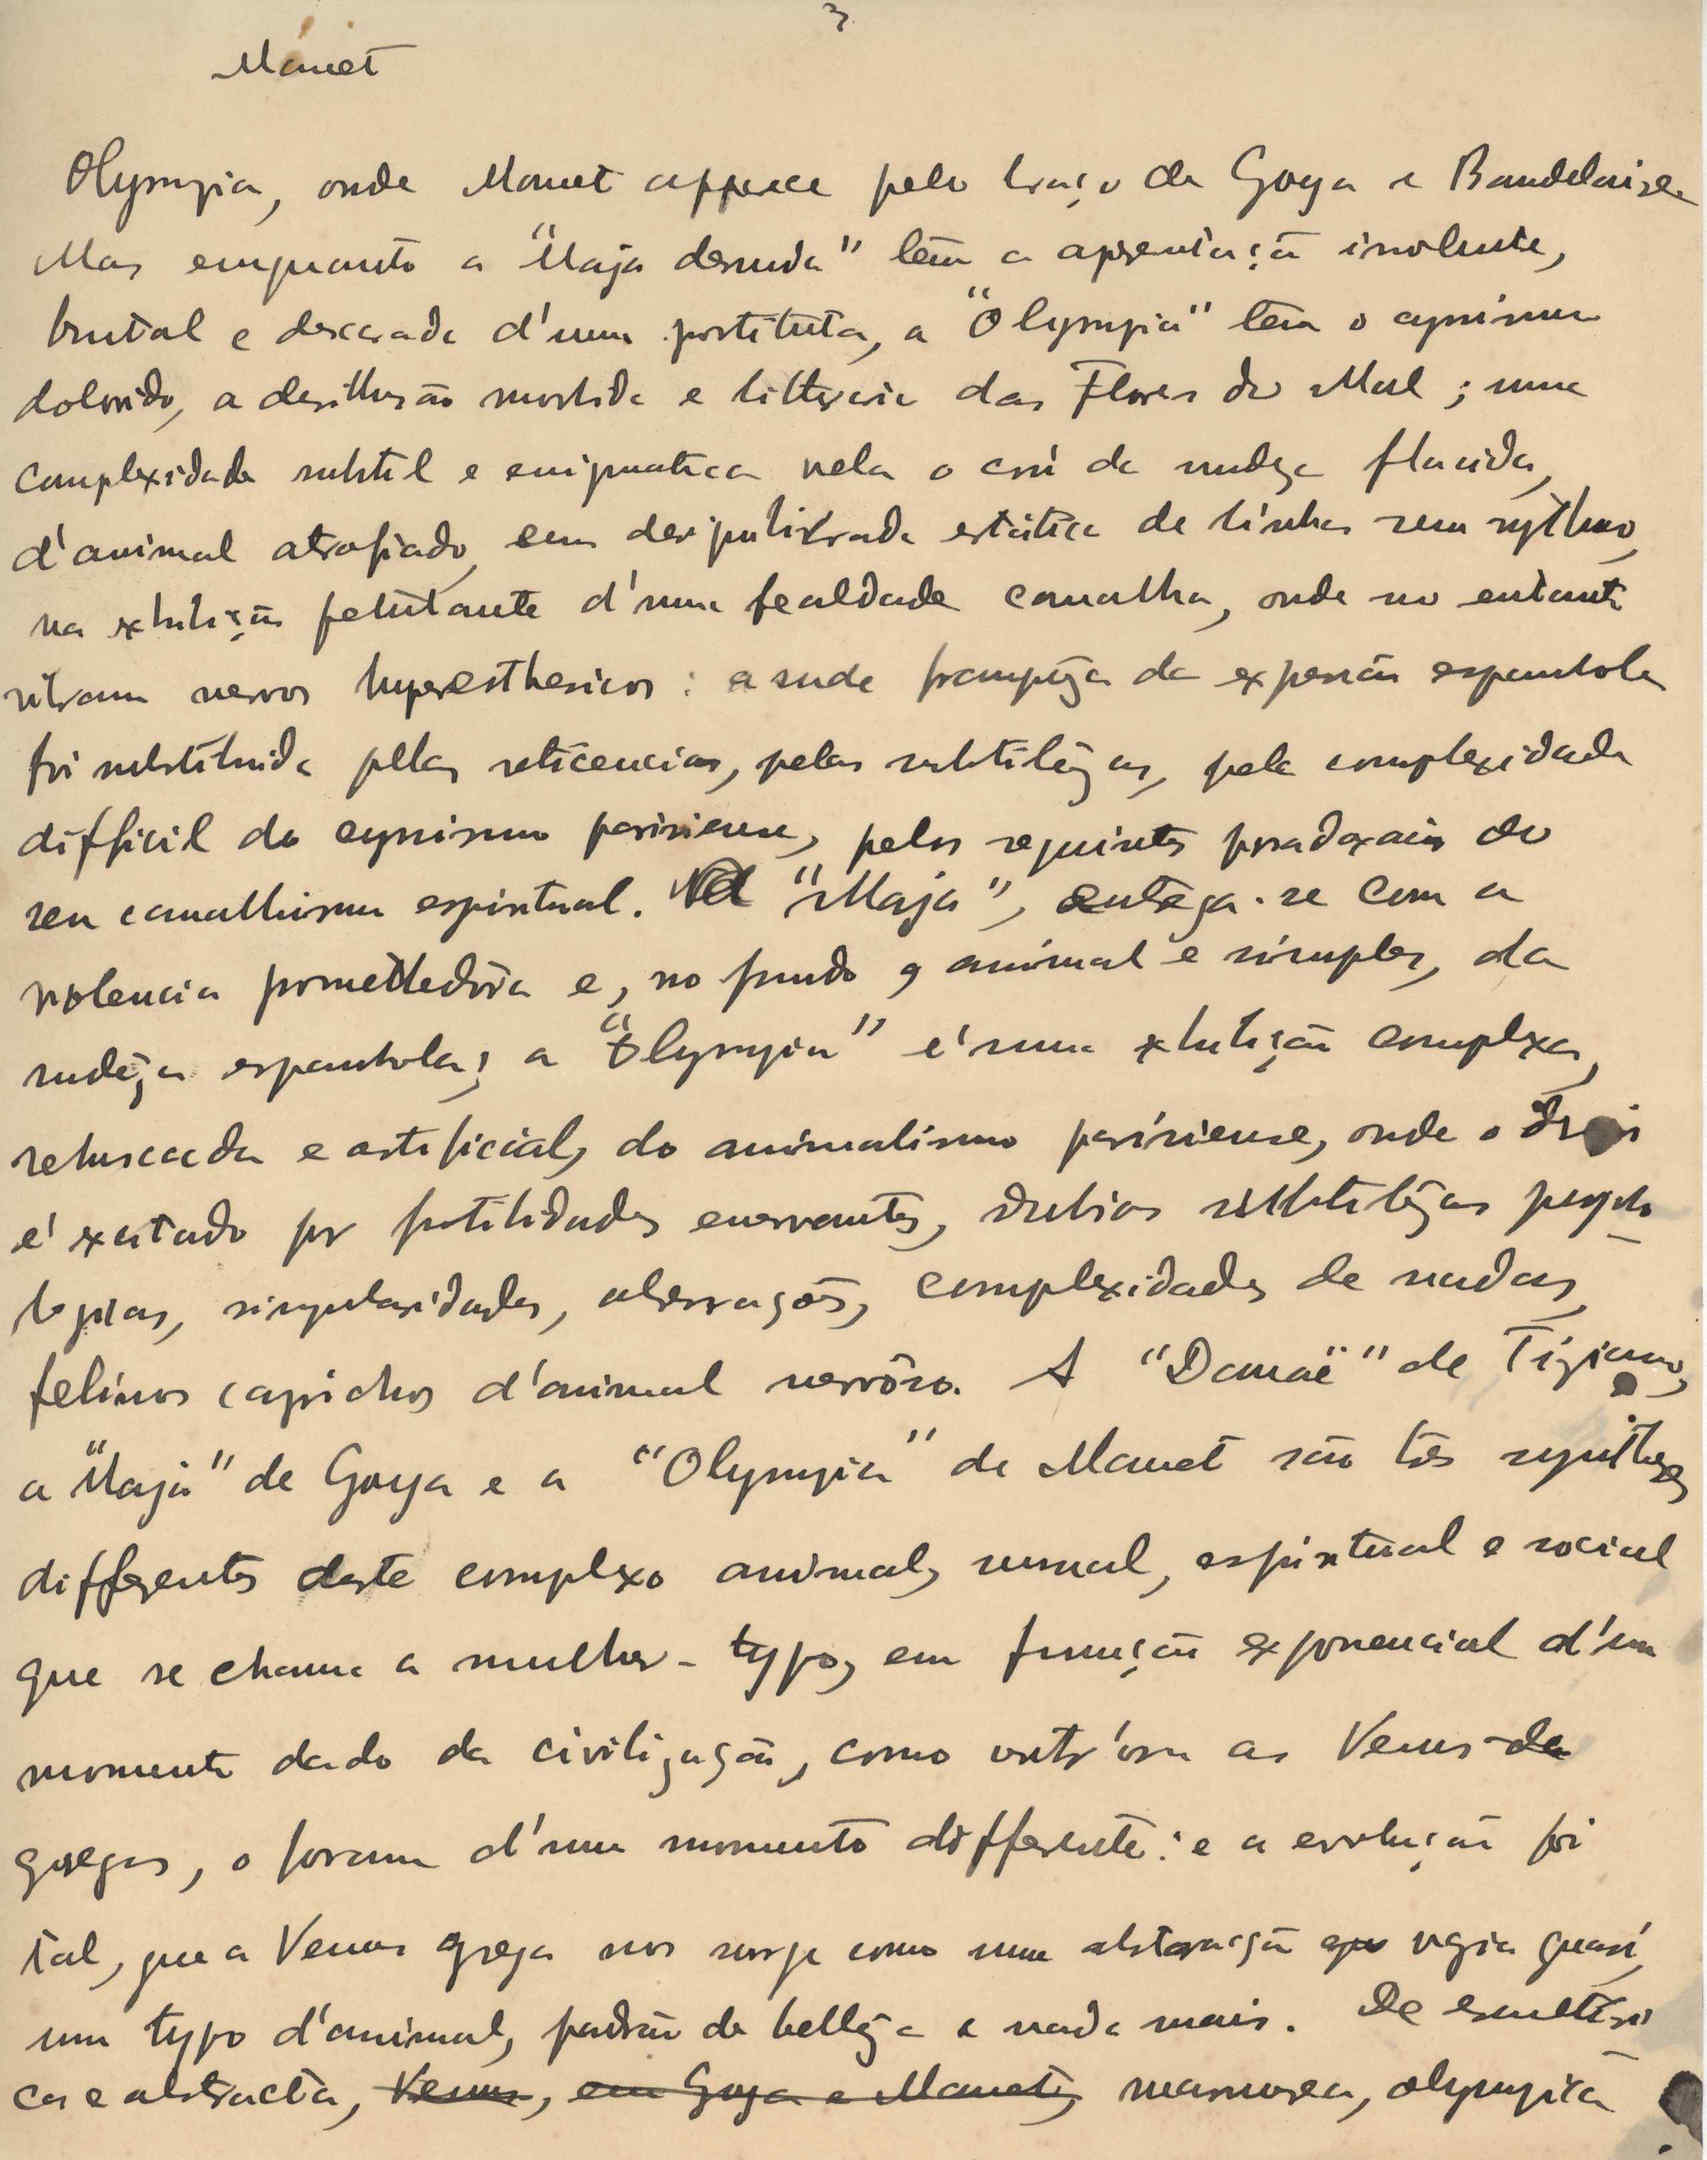 3
Manet
Olympia, onde Manet apparece pelo braço de Goya e Baudelaire
Mas emquanto a "Maja desnuda" tem a apresentação insolente,
brutal e descarada d'uma prostituta, a "Olympia" tem o cynismo
dolorido, a desillusão morbida e litteraria das Flores do Mal; uma
complexidade subtil e enigmatica vela o crú da nudeza flacida,
d'animal atrofiado, sem desiquilibrada estática de linhas sem rythmo,
na exhibição petulante d'uma fealdade canalha, onde no entanto
vibram nervos hyperesthesicos: a rude franqueza da expressão espanhola
foi substituida pelas reticencias, pelas subtilêzas, pela complexidade
difficil do cynismo parisiense, pelos requintes paradoxais do
seu canalhismo espiritual. A "Maja", entrega-se com a
violencia promettedôra e, no fundo, animal e simples, da
rudêza espanhola; a "Olympia" é uma exhibição complexa,
rebuscada e artificial, do animalismo parisiense, onde o
é excitado por futilidades enervantes, dubias subtilêzas psycho-
logicas, singularidades, aberrações, complexidades de nadas,
felinos caprichos d'animal nervôso. A "Danaë" de Tiziano,
a "Maja" de Goya e a "Olympia" de Manet são três syntheses
differentes deste complexo animal, sexual, espiritual e social
que se chama a mulher-typo, em funcção exponencial d'um
momento dado da civilização, como outr'ora as Venus da
gregas, o foram d'um momento differente: e a evolução foi
tal, que a Venus grega nos surge como uma abstracção vazia quasi,
um typo d'animal, padrão de bellêza e nada mais. De esculturi
ca e abstracta, Venus, em Goya e Manet, marmorea, olympica